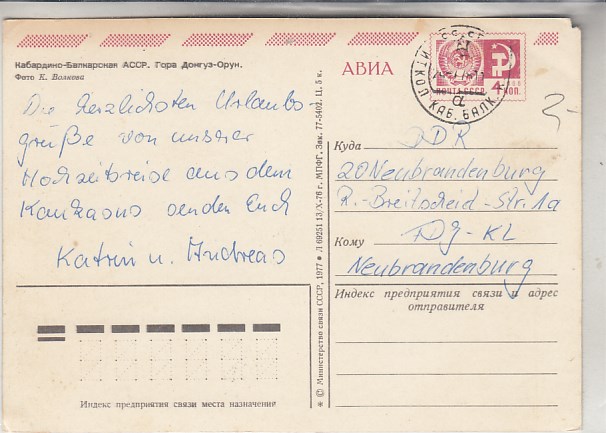 Кабардино-Балкарская АССР. Гора Донгуз-Орун.
Фото К. Волкова
Die herzlichsten Urlaubs-
grüße von unserer
Hochzeitsreise aus dem
Kaukasus senden Euch
Katrin u. Andreas
АВИА
ПОЧТА СССР
4 КОП.
ИТКОЛ КАБ. БАЛК.
Куда DDR
20 Neubrandenburg
R.-Breitscheid-Str. 1a
Кому
KL
Neubrandenburg
Индекс предприятия связи и адрес отправителя
Индекс предприятия связи места назначения
* © Министерство связи СССР, 1977 * Л 69251 13/X-76 г. МПФГ. Зак. 77-5402. Ц. 5 к.